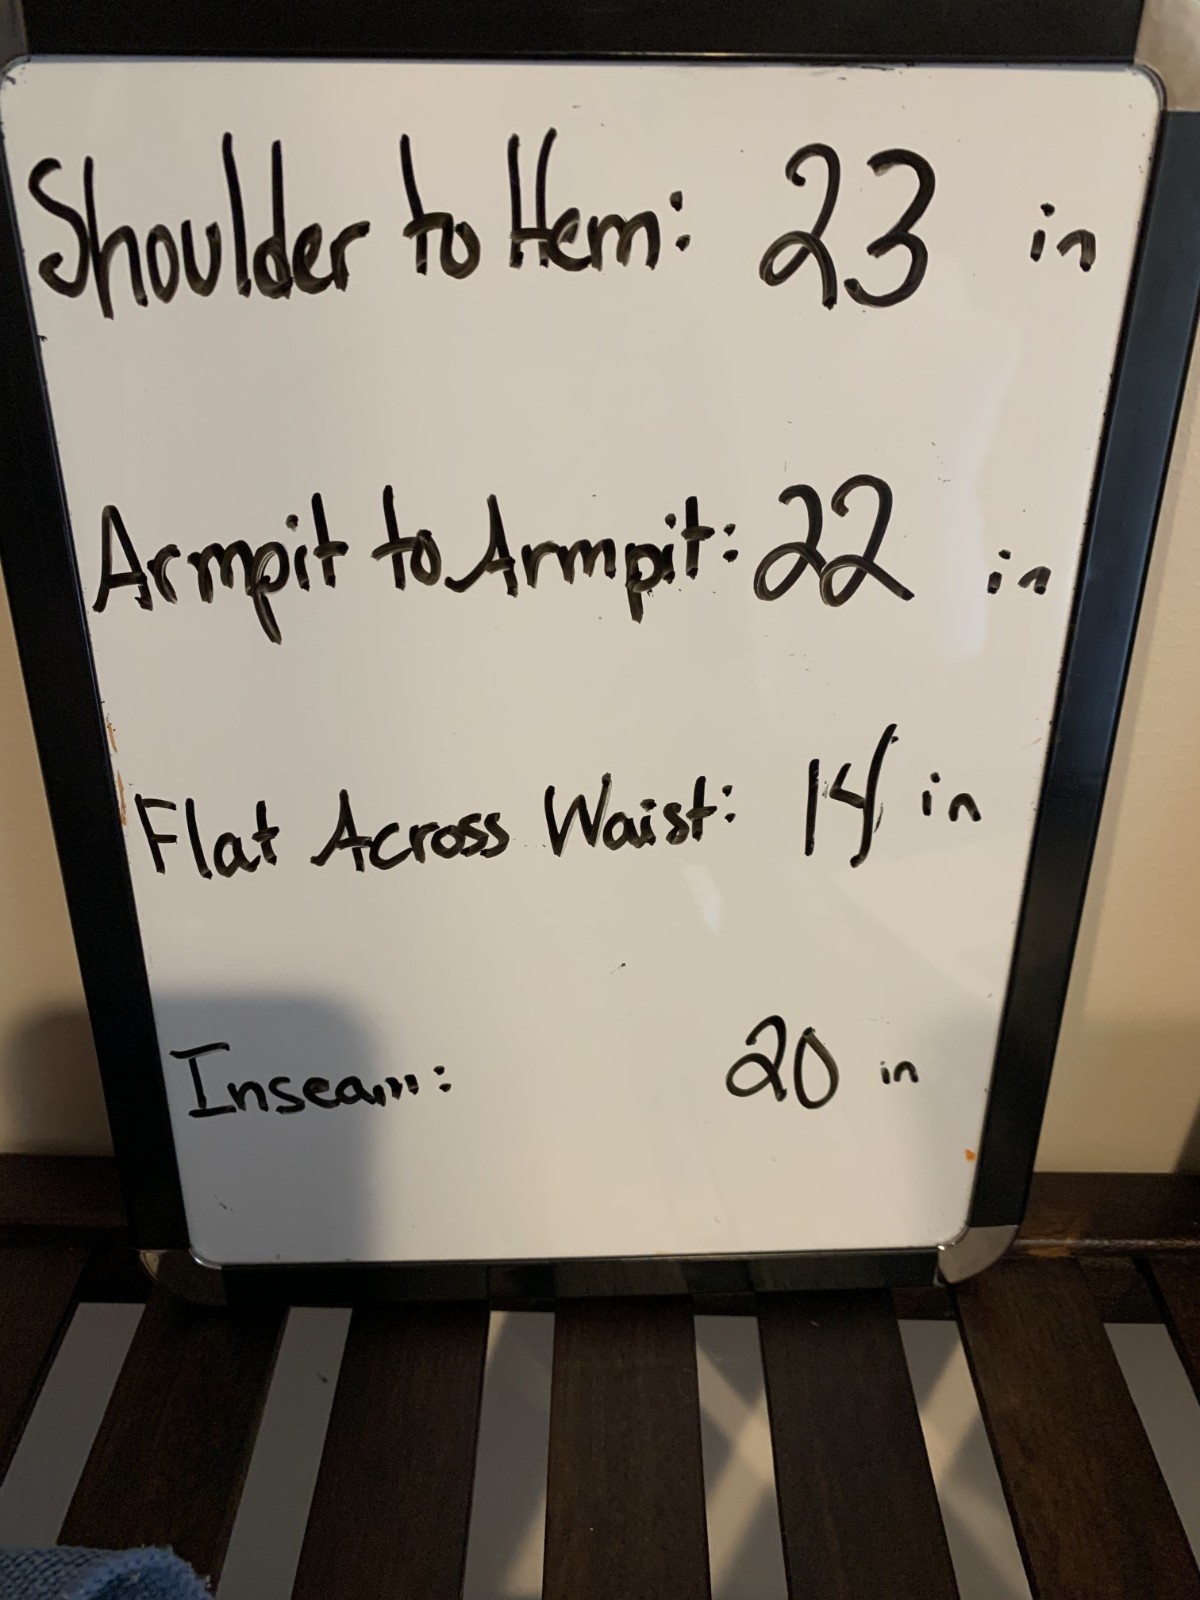 Shoulder to Hem: 23 in
Armpit to Armpit: 22 in
Flat Across Waist: 14 in
Inseam: 20 in